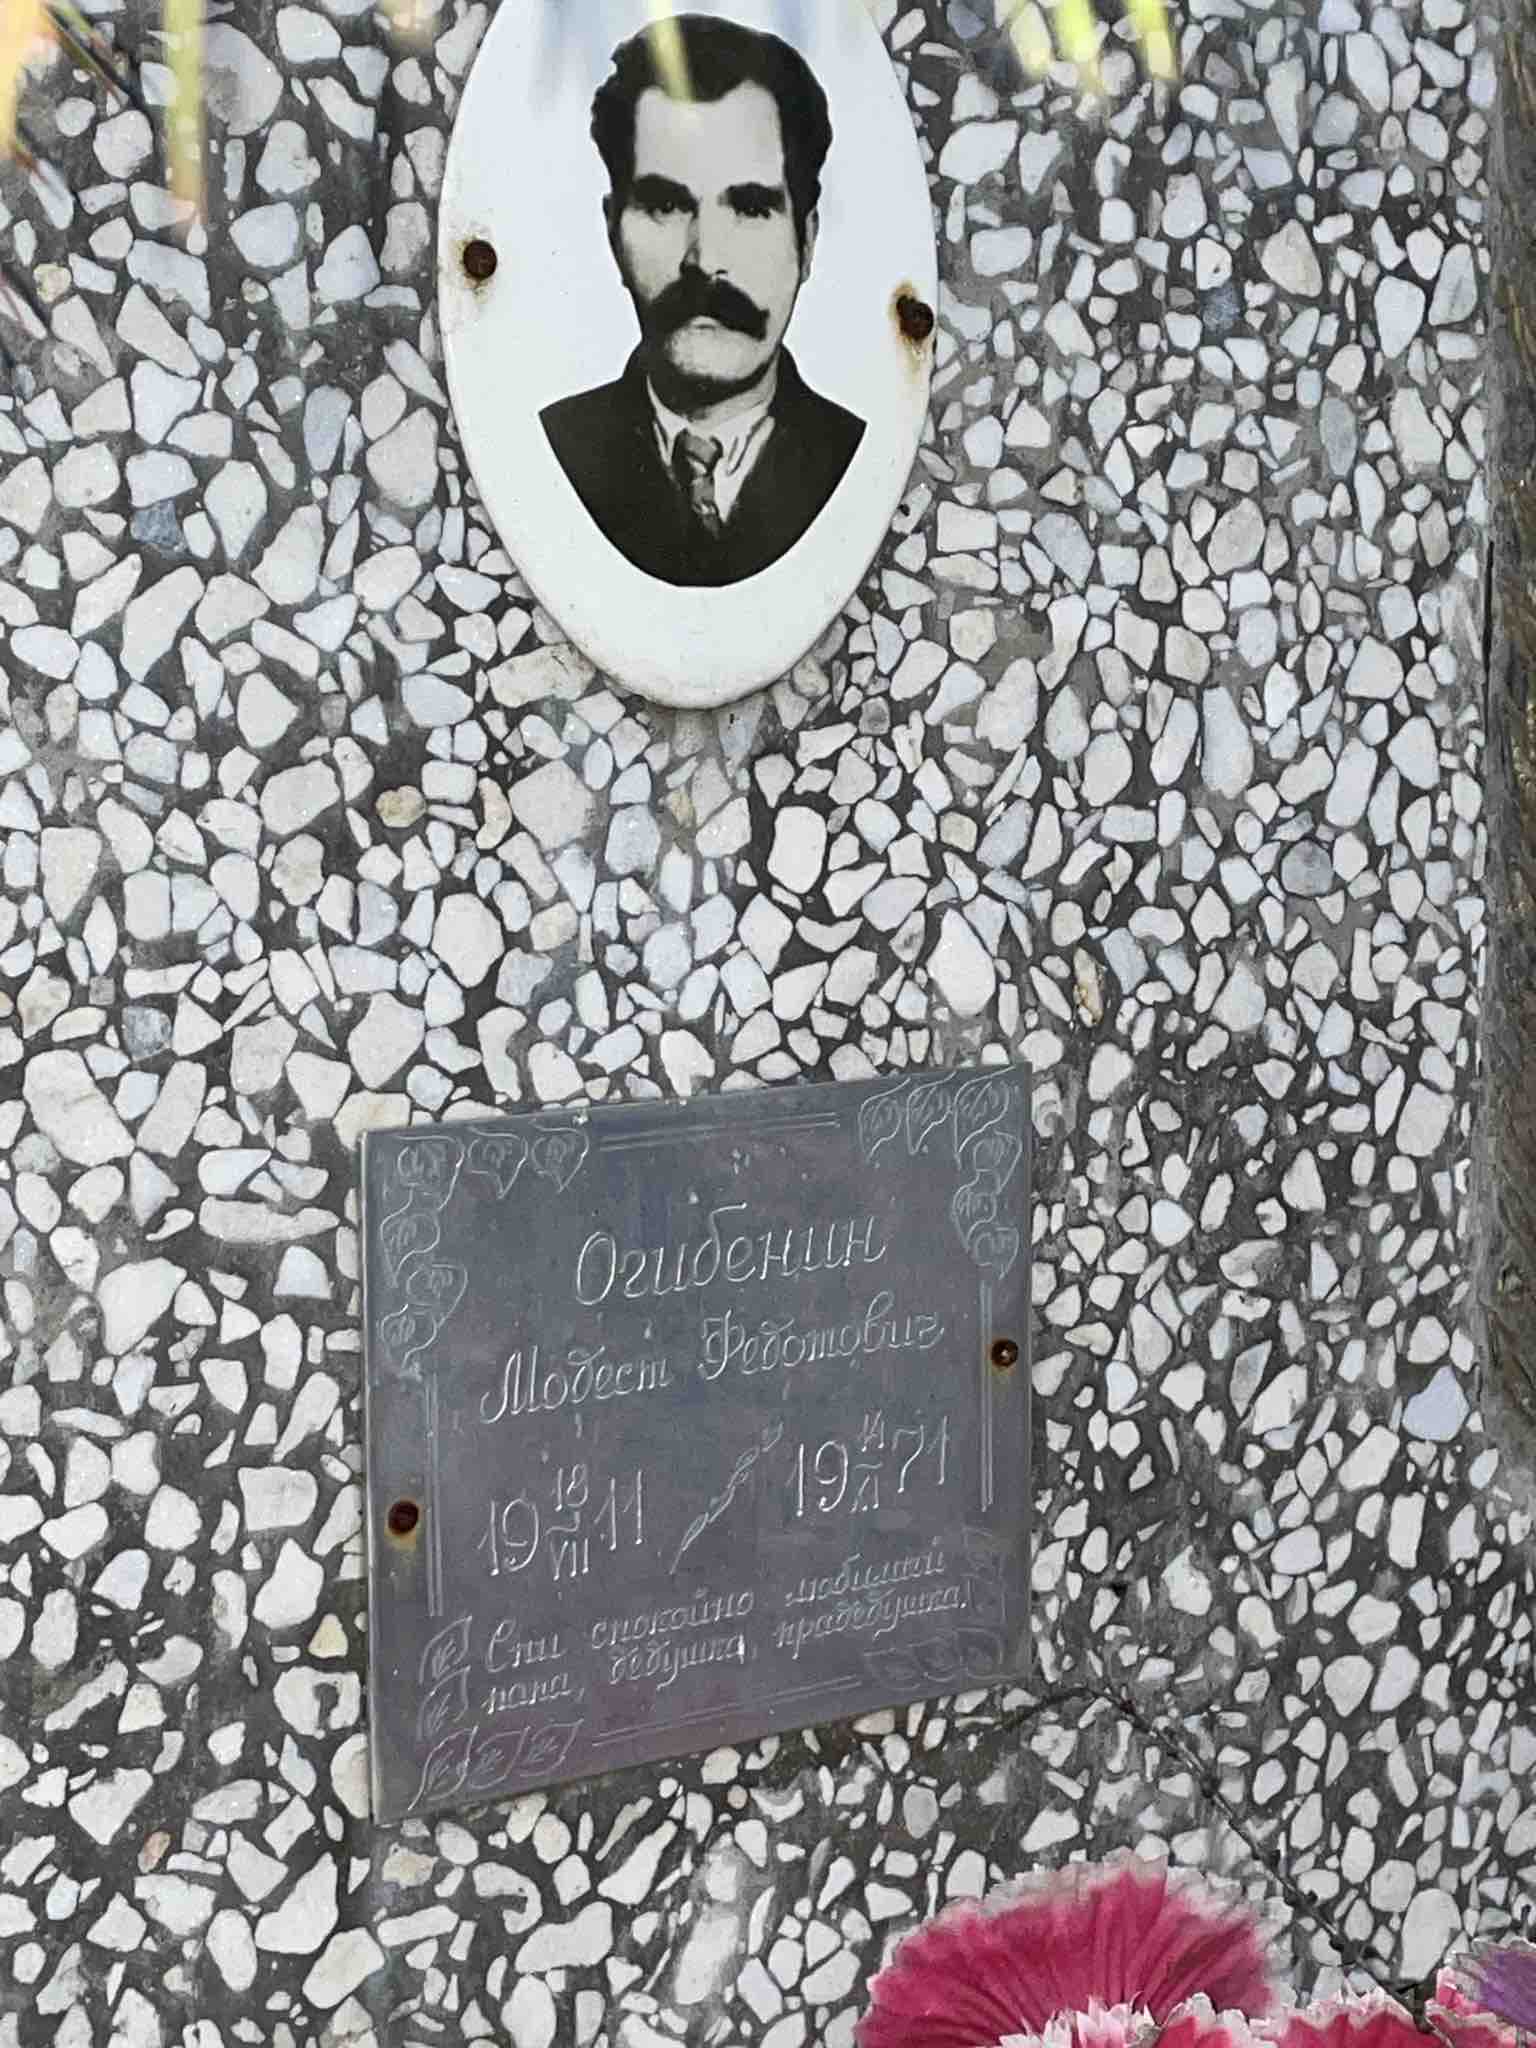 Огибенин
Модест Федотович
19 18/VII 11 19 14/XI 71
Спи спокойно любимый
папа, дедушка, прадедушка.